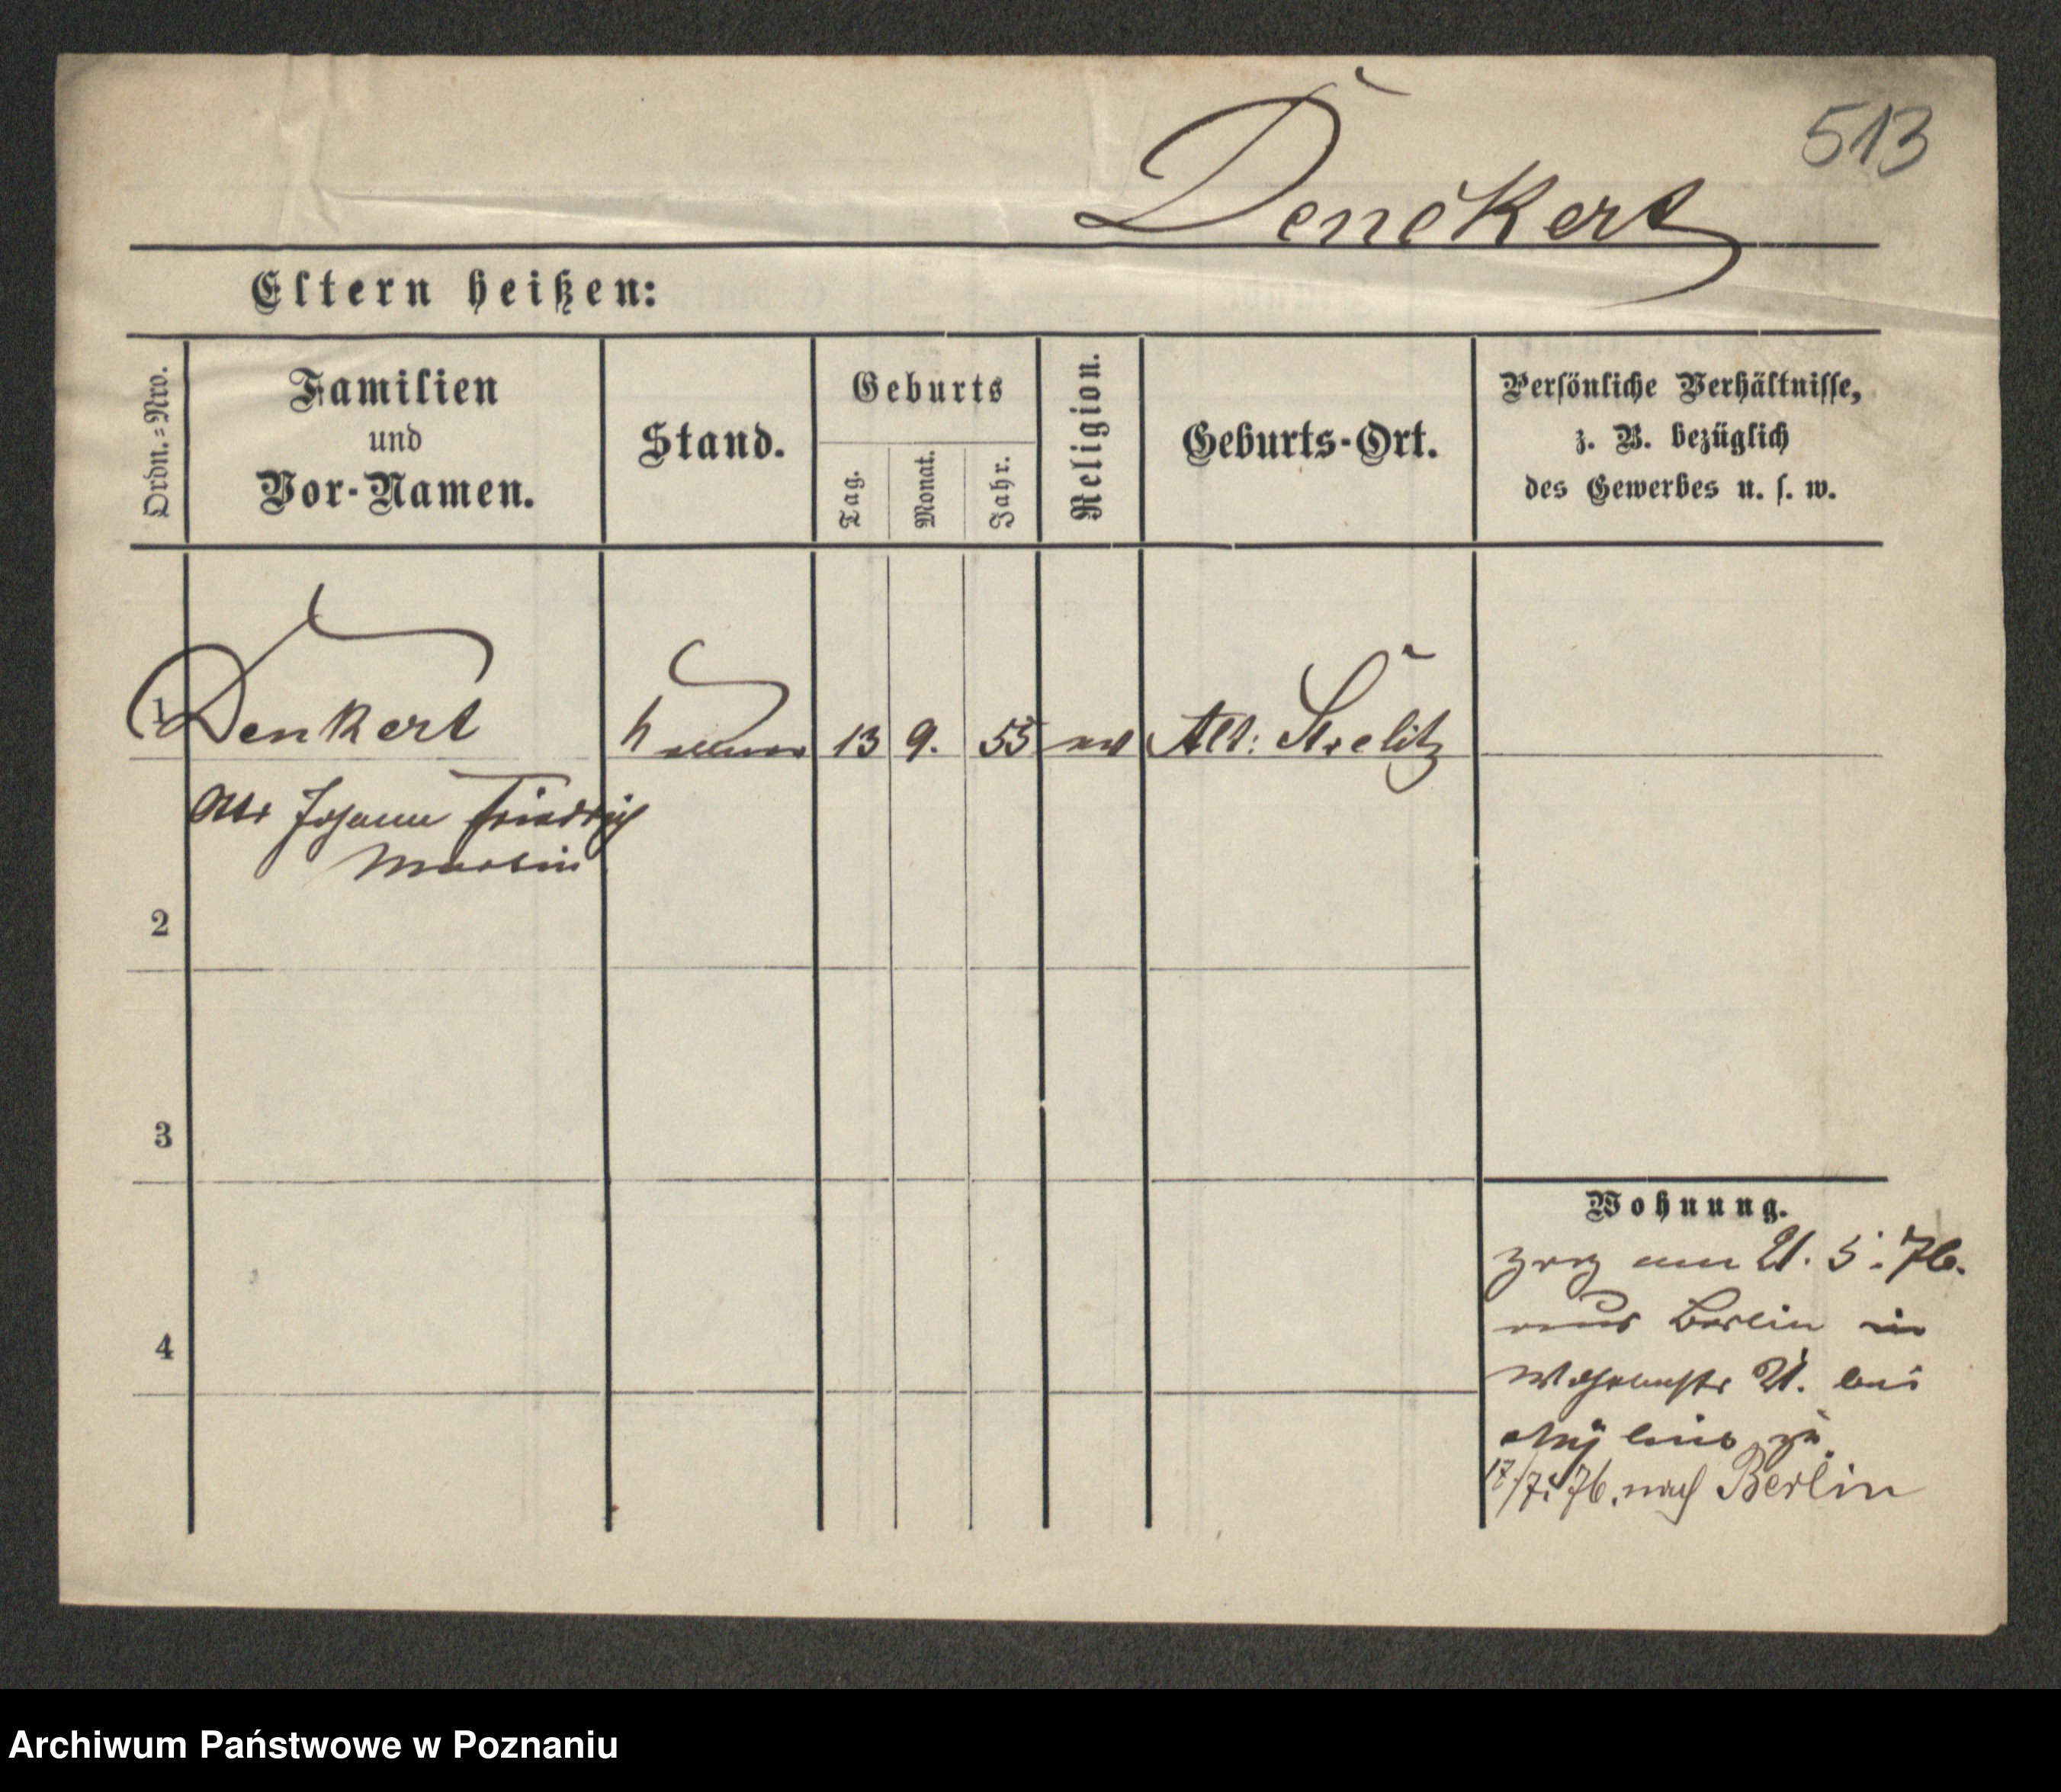 513
Denckert
Eltern heißen:
Ordn.=Nro.
Familien
und
Vor-Namen.
Stand.
Geburts
Tag.
Monat.
Jahr.
Religion.
Geburts-Ort.
Persönliche Verhältnisse,
z. B. bezüglich
des Gewerbes u. s. w.
1
Denkert
13
9.
55
ev
Alt: Strelitz
Otto Johann Friedrich
Martin
2
3
4
Wohnung.
zog am 21. 5. 76.
aus Berlin in
21. bei
zu.
17/7. 76. nach Berlin
Archiwum Państwowe w Poznaniu